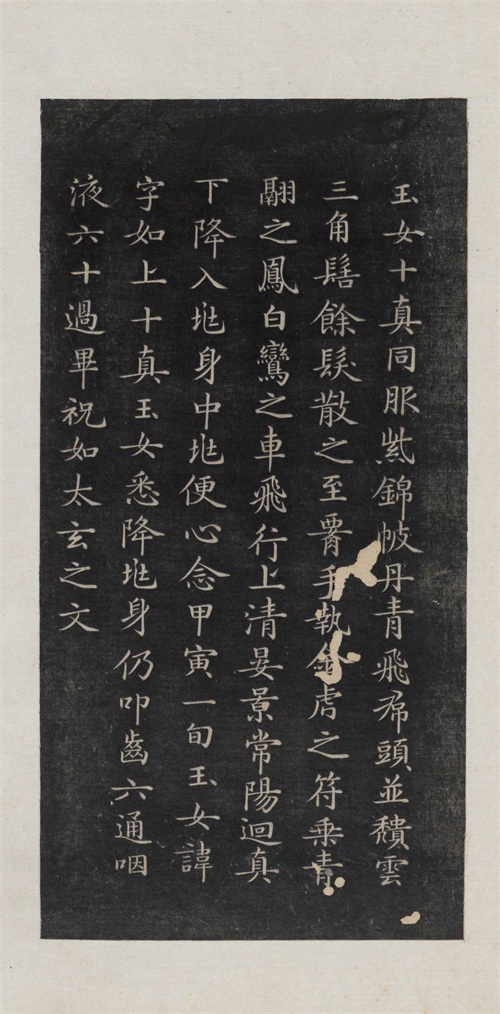 玉女十真同服紫錦帔丹青飛帬頭並頹雲
三角髻餘髮散之至腰手執金虎之符乘青
翮之鳳白鸞之車飛行上清晏景常陽迴真
下降入兆身中兆便心念甲寅一旬玉女諱
字如上十真玉女悉降兆身仍叩齒六通咽
液六十過畢祝如太玄之文